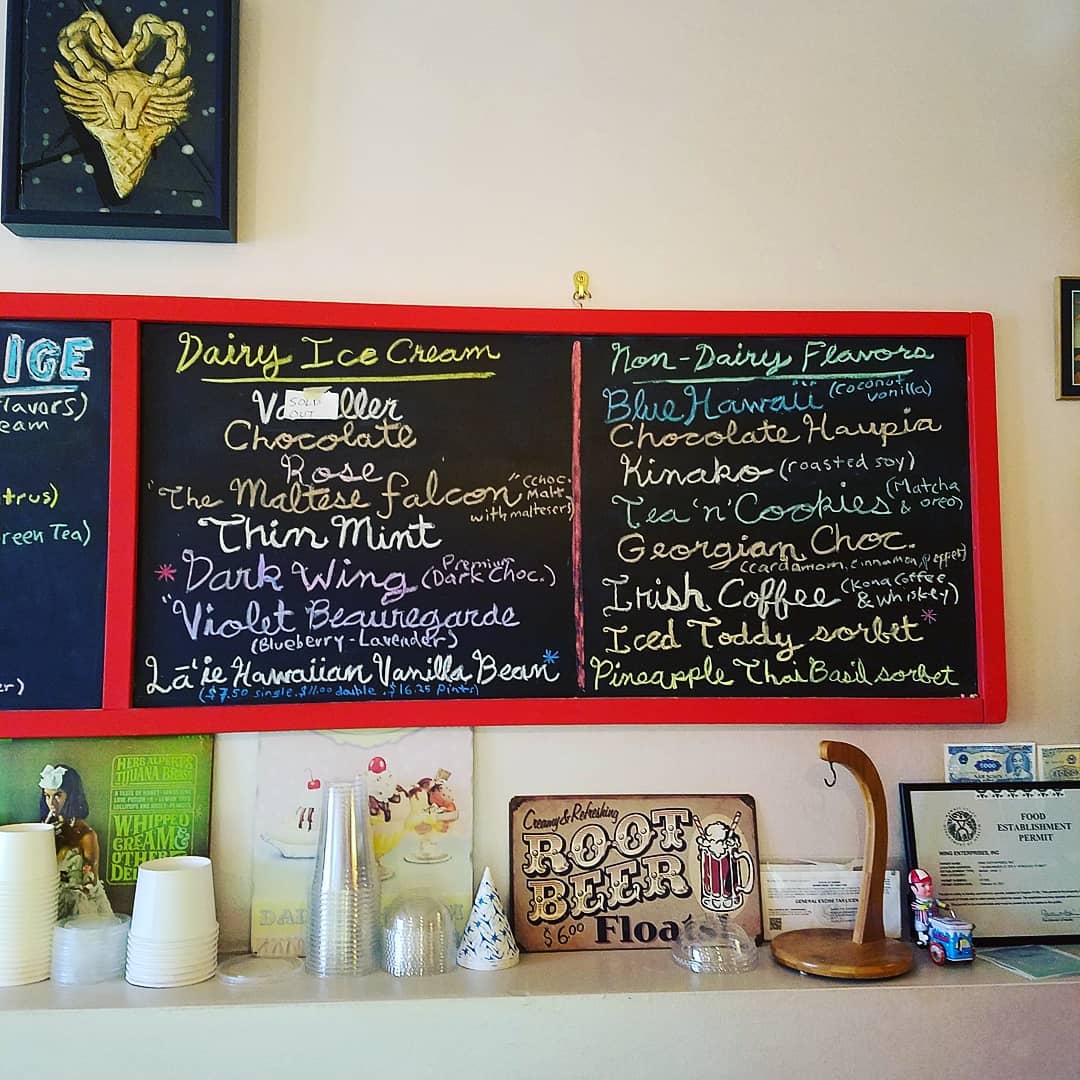 W
ICE
flavors)
eam
itrus)
reen Tea)
er)
Dairy Ice Cream
SOLD
OUT
Chocolate
Rose
"The Maltese falcon" (choc.
Malt
with maltesers)
Thin Mint
* Dark Wing (Premium
Dark Choc.)
"Violet Beauregarde
(Blueberry-Lavender)
Lā'ie Hawaiian Vanilla Bean*
($7.50 single, $11.00 double, $16.25 pints)
Non-Dairy Flavors
Blue Hawaii (coconut
vanilla)
Chocolate Haupia
Kinako (roasted soy)
Tea 'n' Cookies (Matcha
& oreo)
Georgian Choc.
(cardamom, cinnamon, pepper)
Irish Coffee (Kona Coffee
& Whiskey)
Iced Toddy sorbet*
Pineapple Thai Basil sorbet
HERB ALPERT'S
TIJUANA BRASS
WHIPPED
CREAM &
OTHER
DEL
DAI
Creamy & Refreshing
ROOT
BEER
$6.00 Floats
GENERAL EXCISE TAX LICENSE
FOOD
ESTABLISHMENT
PERMIT
WING ENTERPRISES, INC